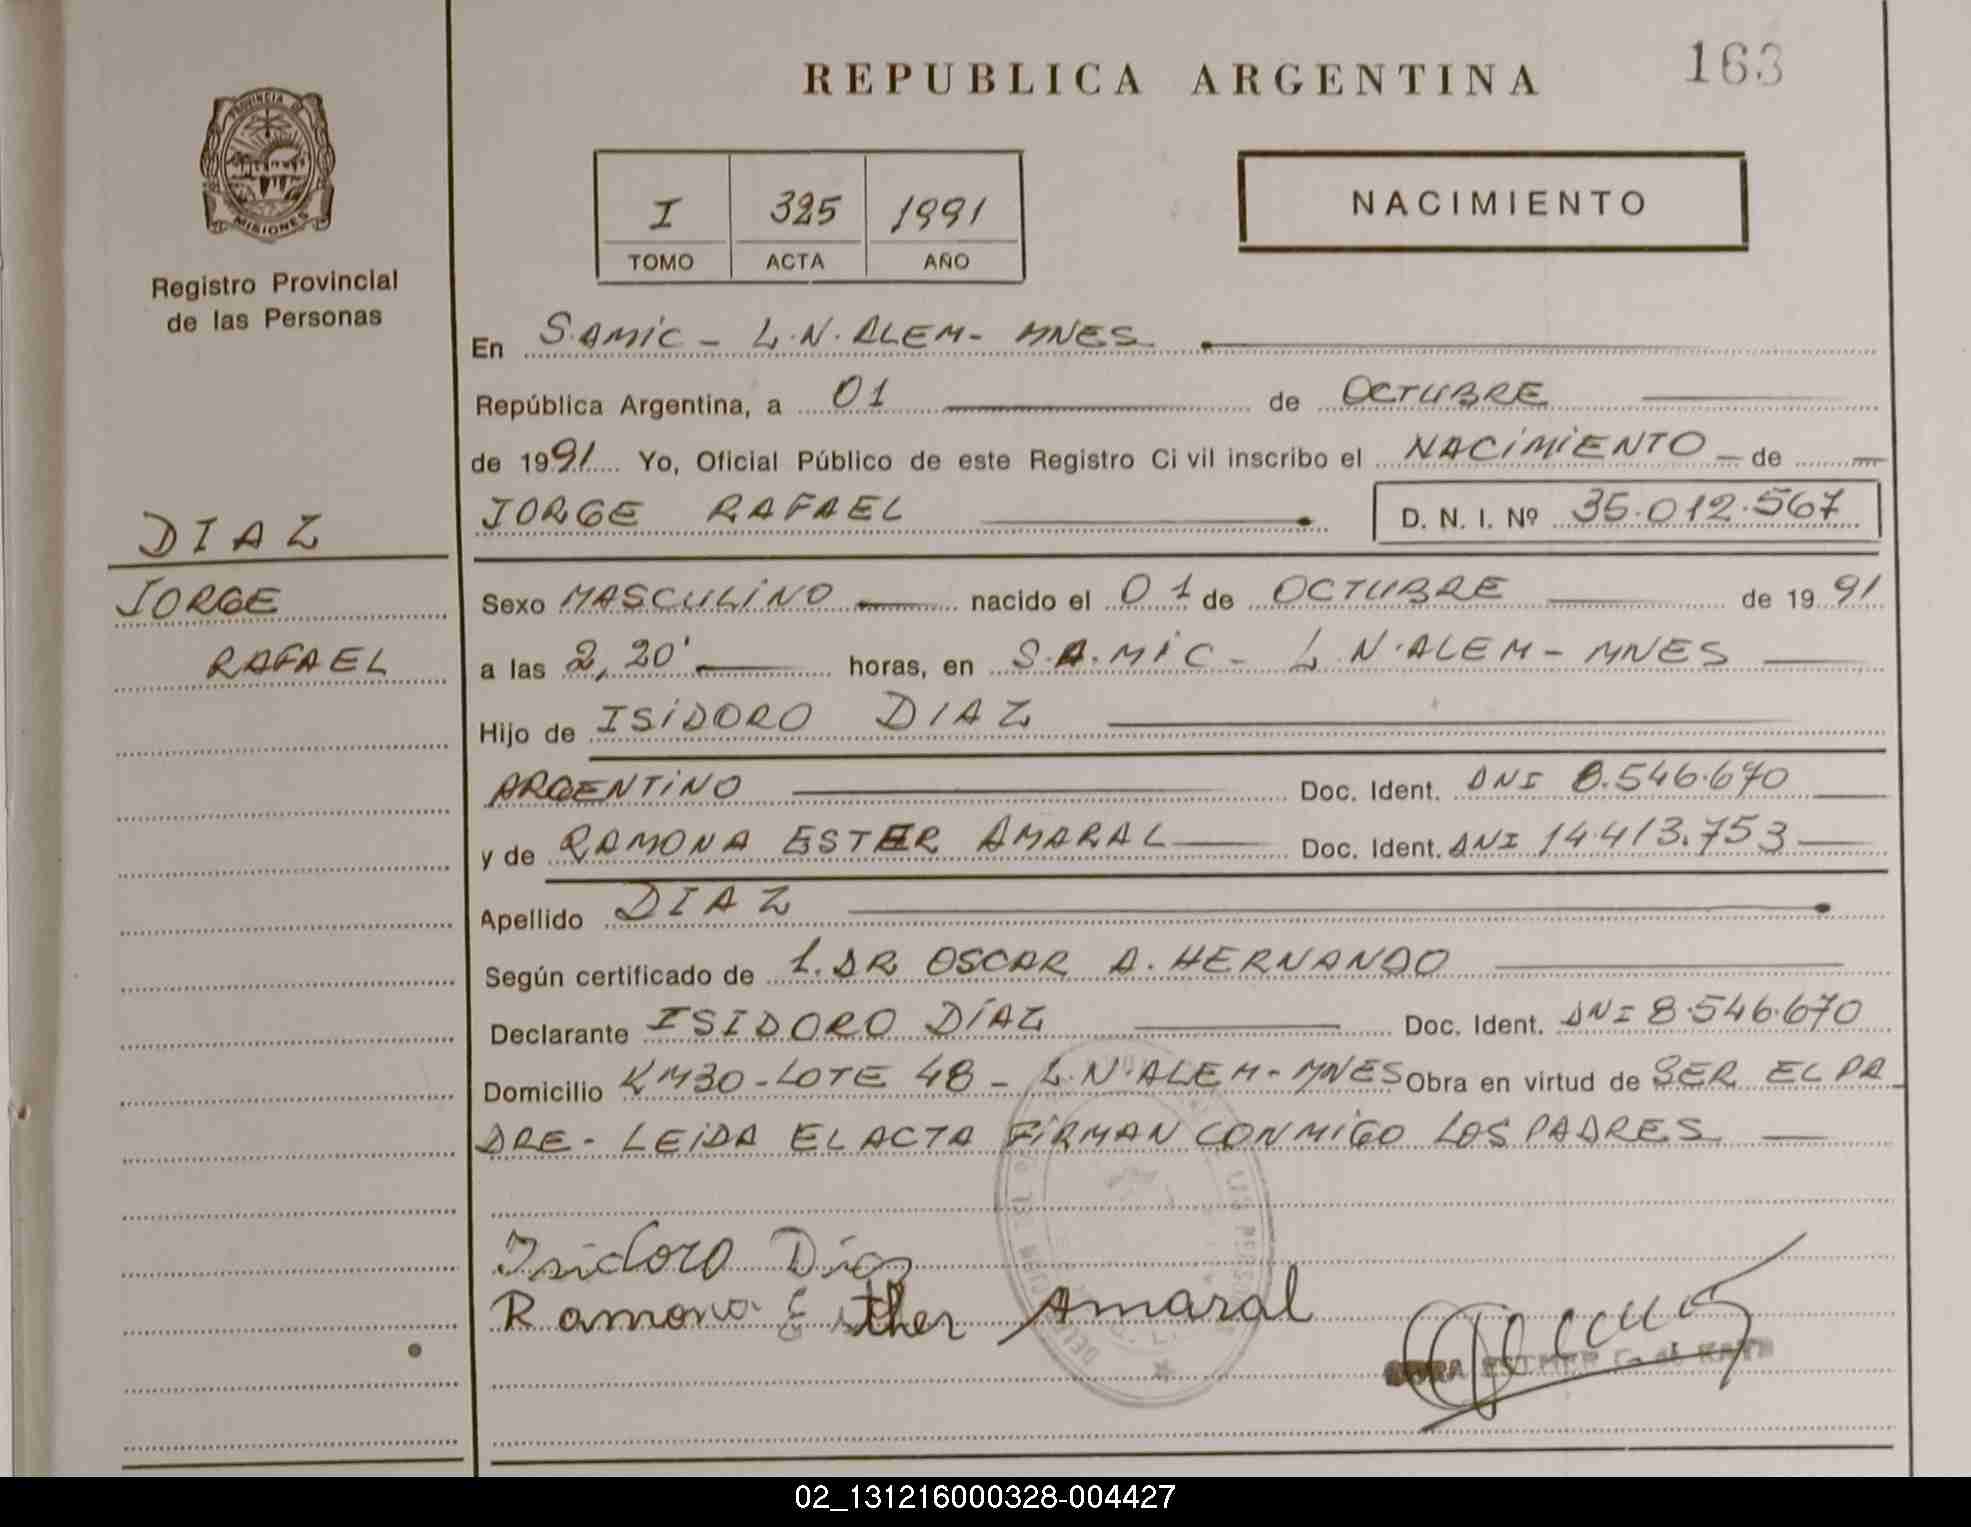 REPUBLICA ARGENTINA
163
PROVINCIA DE
MISIONES
Registro Provincial
de las Personas
I 325 1991
TOMO ACTA AÑO
NACIMIENTO
En S.AMIC - L.N.ALEM - MNES
República Argentina, a 01 de OCTUBRE
de 1991 Yo, Oficial Público de este Registro Civil inscribo el NACIMIENTO de
JORGE RAFAEL D. N. I. Nº 35.012.567
DIAZ
JORGE
RAFAEL
Sexo MASCULINO nacido el 01 de OCTUBRE de 1991
a las 2,20' horas, en S.A.MIC - L.N.ALEM - MNES
Hijo de ISIDORO DIAZ
ARGENTINO Doc. Ident. DNI 8.546.670
y de RAMONA ESTER AMARAL Doc. Ident. DNI 14.413.753
Apellido DIAZ
Según certificado de 1.DR OSCAR A. HERNANDO
Declarante ISIDORO DÍAZ Doc. Ident. DNI 8.546.670
Domicilio KM30 - LOTE 48 - L.N.ALEM - MNES Obra en virtud de SER EL PA
DRE - LEIDA EL ACTA FIRMAN CONMIGO LOS PADRES
Isidoro Diaz
Ramona Esther Amaral
ESTHER G. de
02_131216000328-004427